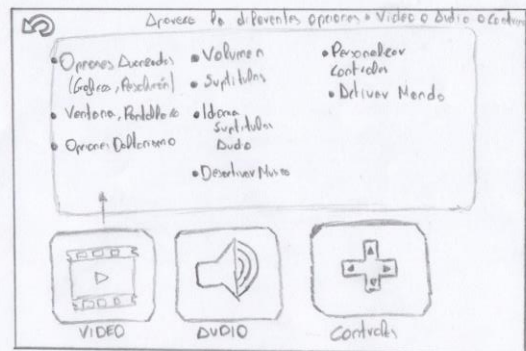 Aparece la diferentes opciones o Video o Audio o Control
• Opciones Avanzadas
(Graficos, Resolución)
• Ventana, Pantalla
• Opciones Daltonismo
• Volumen
• Suptitulos
• Idioma
Suptitulos
Audio
• Desactivar Musica
• Personalizar
Controles
• Activar Mando
VIDEO
AUDIO
Controles